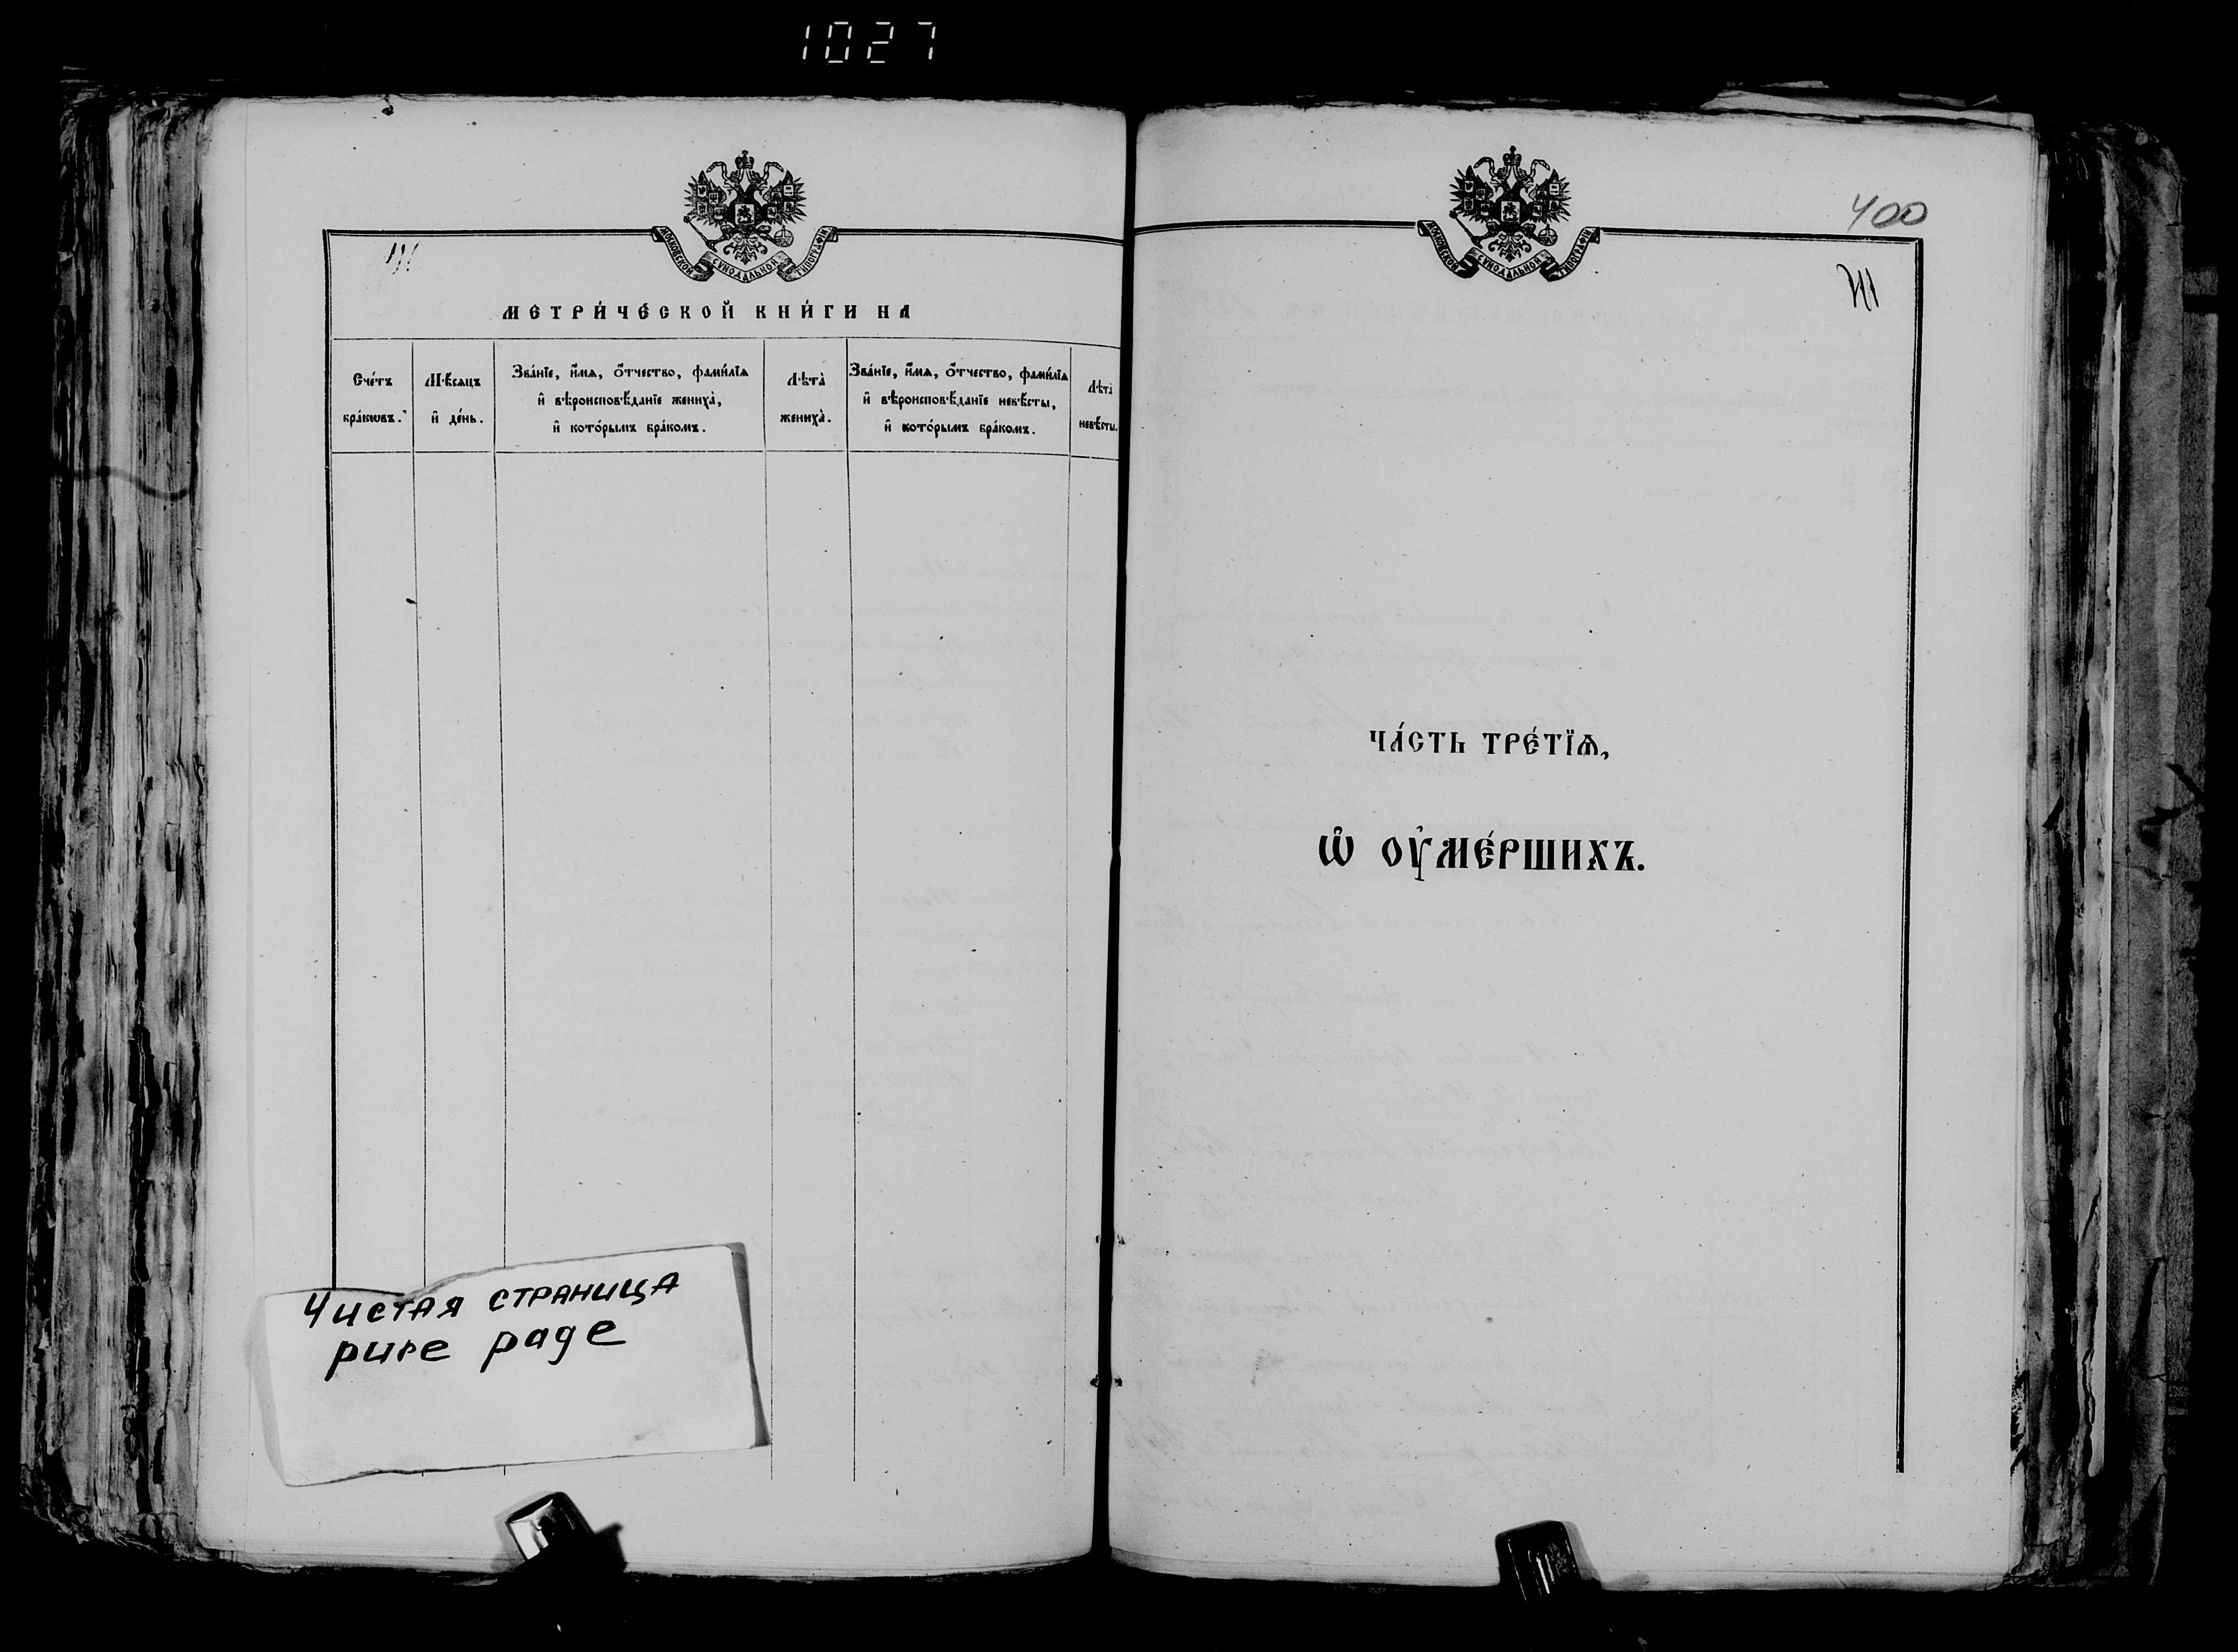 1027
МОСКОВСКОЙ СѴНОДАЛЬНОЙ ТИПОГРАФІИ
МЕТРИ́ЧЕСКОЙ КНИ́ГИ НА
Сче́тъ
бра́кωвъ.
М҄ѣсяцъ
и҆ де́нь.
Зва́нїе, и҆́мѧ, ѻ҆́тчество, фами́лїѧ
и҆ вѣроисповѣ́данїе жениха̀,
и҆ кото́рымъ бра́комъ.
Лѣта̀
жениха̀.
Зва́нїе, и҆́мѧ, ѻ҆́тчество, фами́лїѧ
и҆ вѣроисповѣ́данїе невѣ́сты,
и҆ кото́рымъ бра́комъ.
Лѣта̀
невѣ́сты.
Чистая страница
pure page
400
МОСКОВСКОЙ СѴНОДАЛЬНОЙ ТИПОГРАФІИ
ЧА́СТЬ ТРЕ́ТЇѦ,
Ѽ ОУ҆МЕ́РШИХЪ.